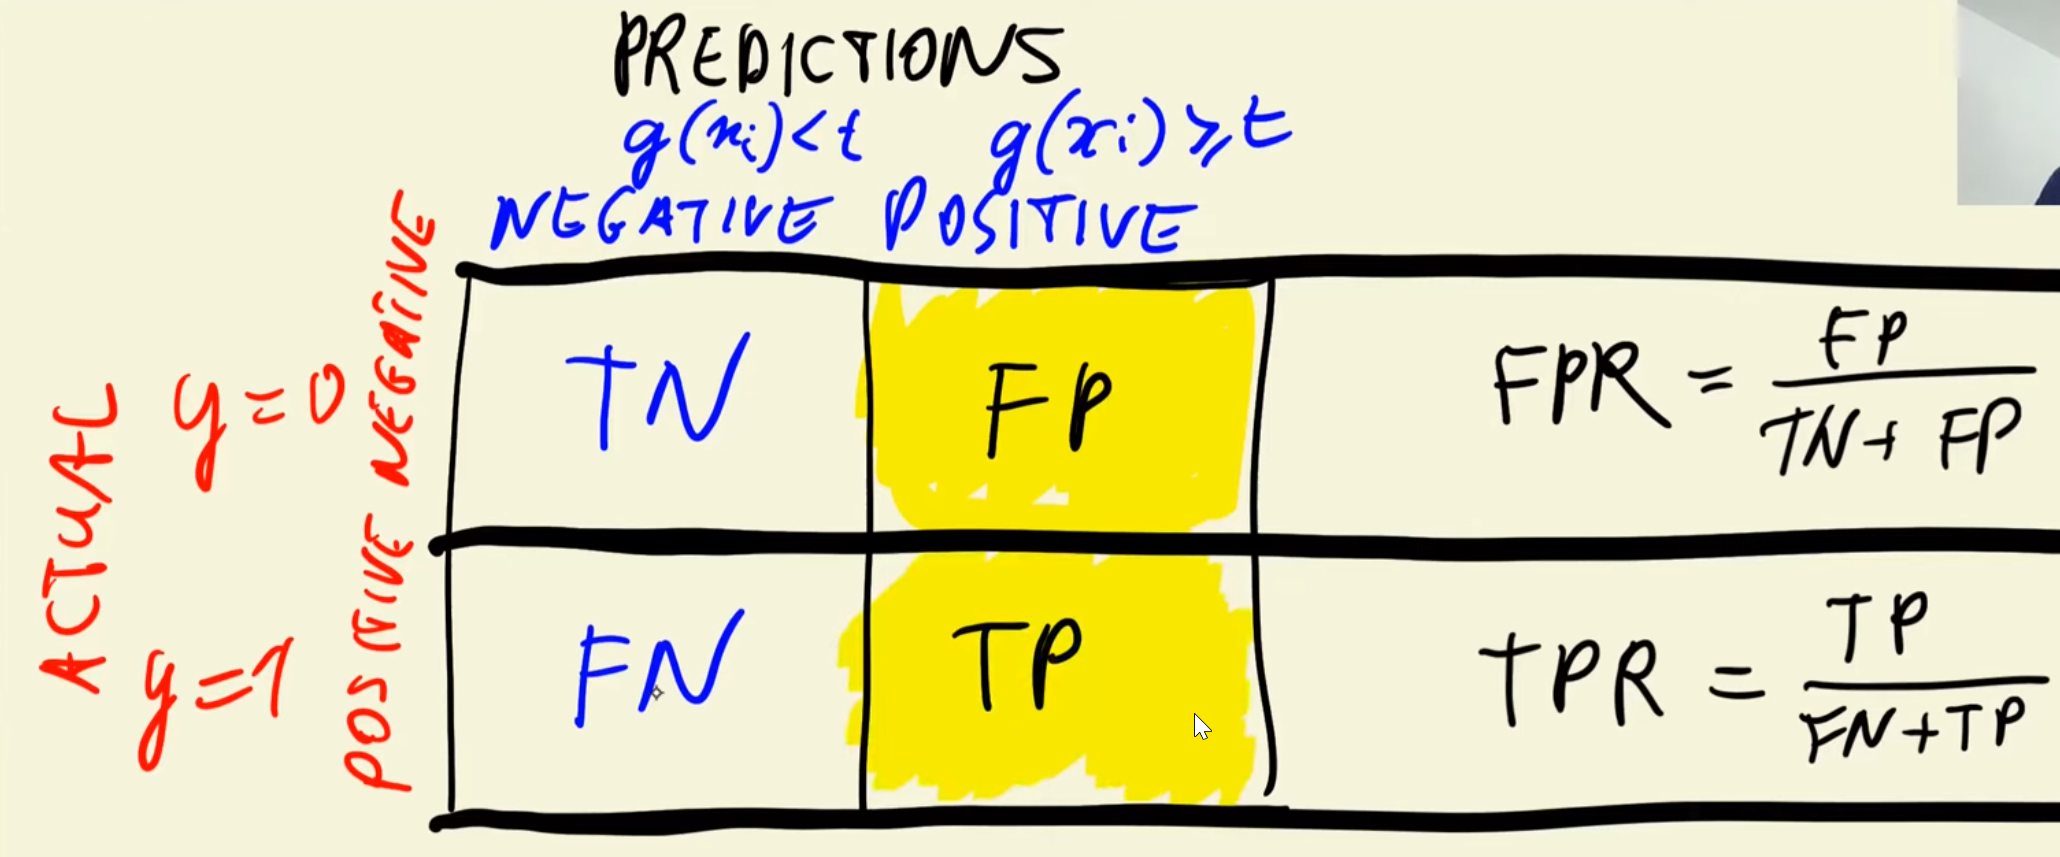 PREDICTIONS
g(xi)<t g(xi)≥t
NEGATIVE POSITIVE
ACTUAL
y=0 NEGATIVE
TN FP
FPR = FP / TN+ FP
y=1 POSITIVE
FN TP
TPR = TP / FN+TP